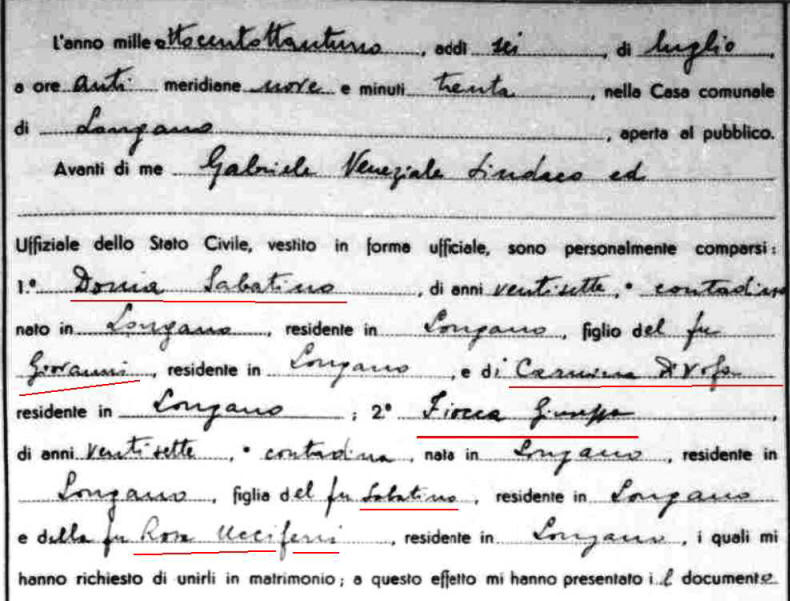 L'anno milleottocentottantuno, addì sei, di luglio,
a ore anti meridiane nove e minuti trenta, nella Casa comunale
di Longano, aperta al pubblico.
Avanti di me Gabriele Veneziale Sindaco ed
Uffiziale dello Stato Civile, vestito in forma ufficiale, sono personalmente comparsi:
1.° Donia Sabatino, di anni ventisette, • contadino
nato in Longano, residente in Longano, figlio del fu
Giovanni, residente in Longano, e di Carmina
residente in Longano; 2° Fiocca
di anni ventisette, • contadina, nata in Longano, residente in
Longano, figlia del fu Sabatino, residente in Longano
e della fu Rosa Ucciferri, residente in Longano, i quali mi
hanno richiesto di unirli in matrimonio; a questo effetto mi hanno presentato il documento